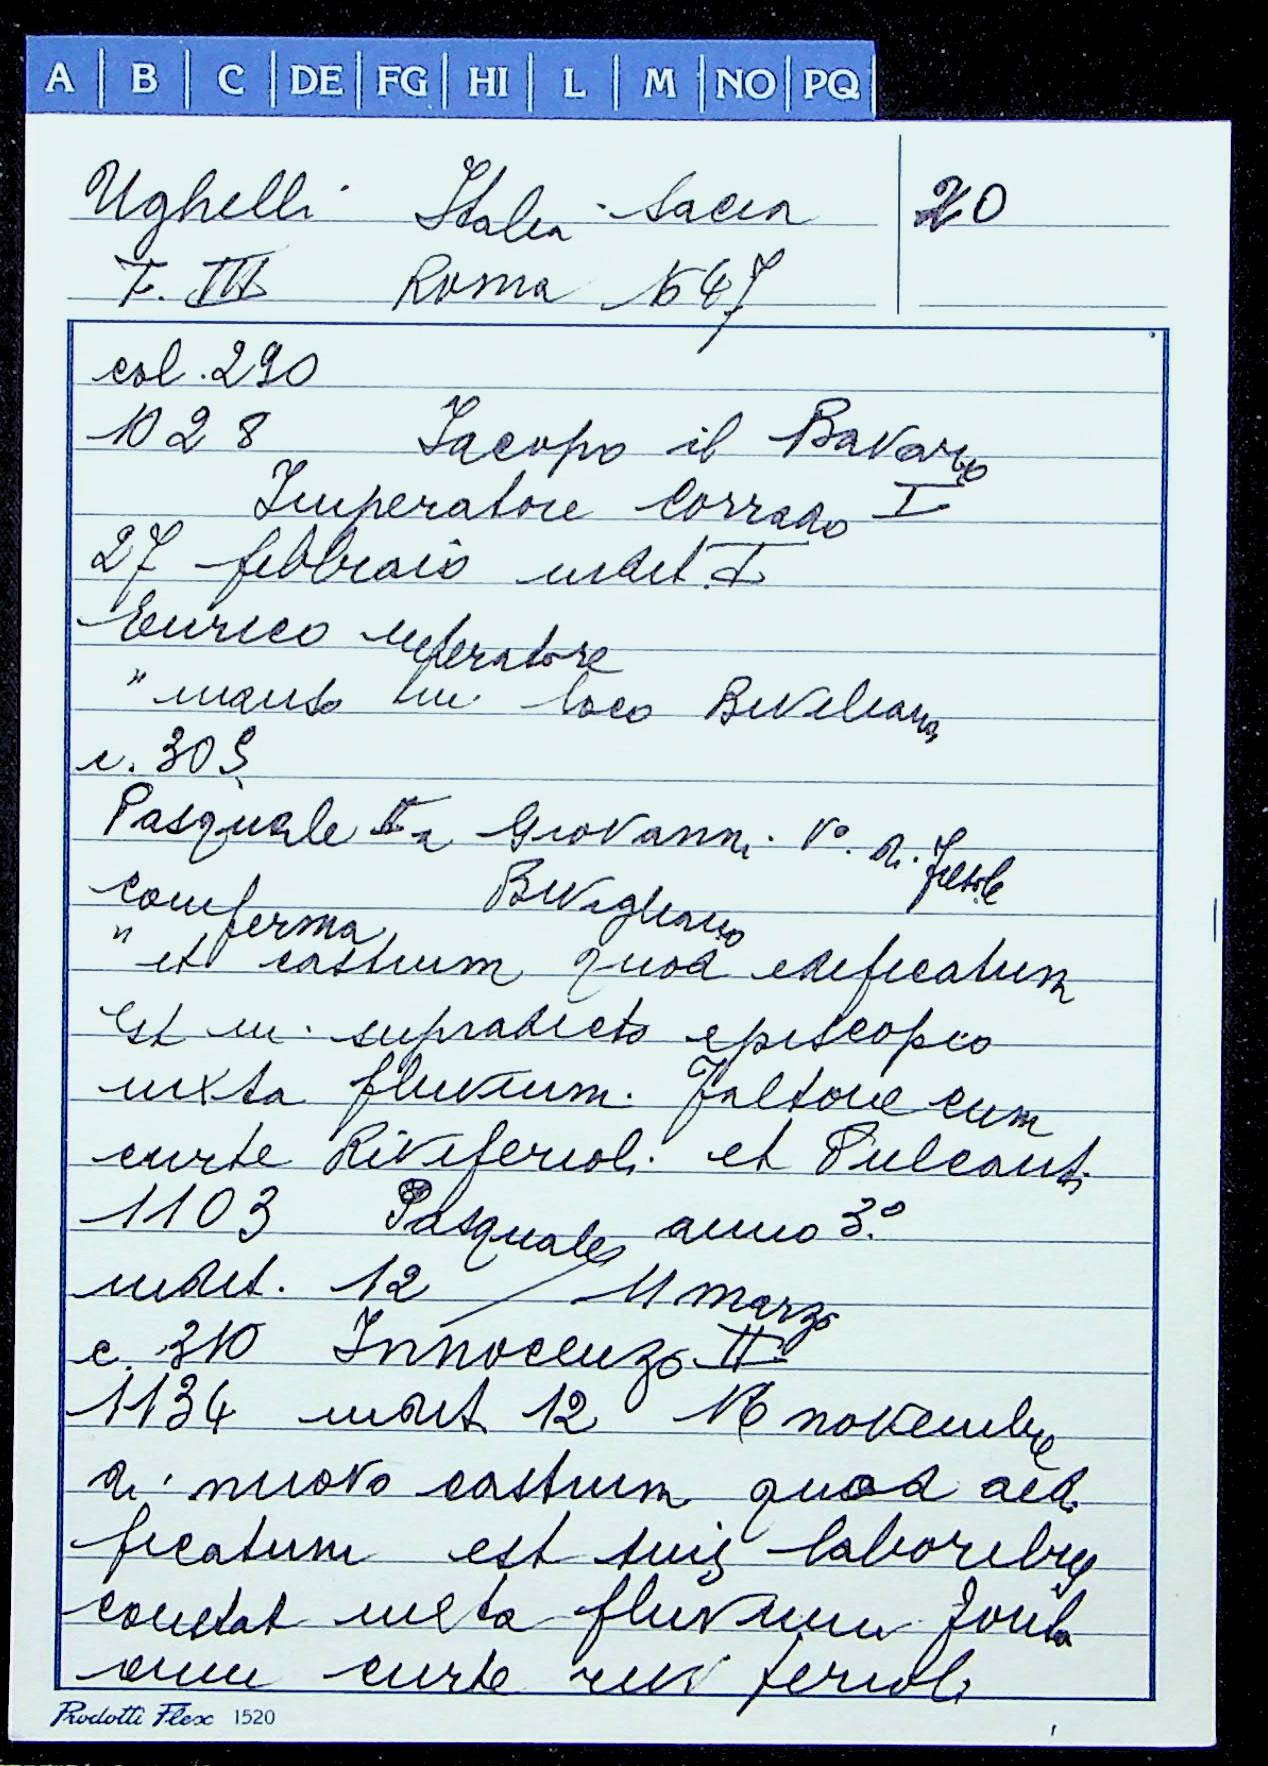 A B C DE FG HI L M NO PQ
Ughelli Italia Sacra 20
T. III Roma 1647
col. 290
1028 Iacopo il Bavaro
Imperatore Corrado I
27 febbraio indict. I
Enrico imperatore
" manso in loco Biviliano
c. 309
Pasquale II a Giovanni Vº. di Fiesole
conferma Bivigliano
" et castrum quod edificatum
Est in supradicto episcopio
iuxta fluvium Faltone cum
curte Riviferioli et Pulcanti
1103 Pasquale anno 3º
indict. 12 / 11 marzo
c. 310 Innocenzo II
1134 indict 12 16 novembre
di nuovo castrum quod aedi
ficatum est suis laboribus
constat iuxta fluvium
cum curte rivi ferioli
Prodotti Flex 1520